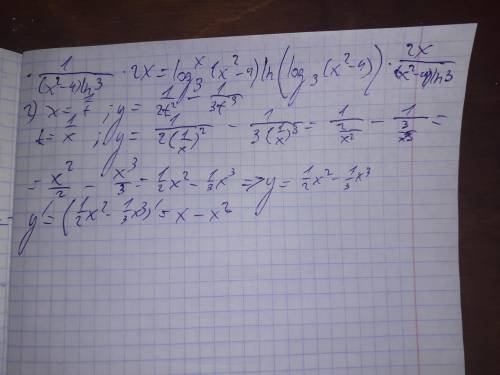 · 1/((x²-4)ln3) · 2x = log₃ˣ(x²-4)ln(log₃(x²-4)) · 2x/((x²-4)ln3)
2) x = 1/t ; y = 1/2t² - 1/3t³
t = 1/x ; y = 1/(2(1/x)²) - 1/(3(1/x)³) = 1/(2/x²) - 1/(3/x³) =
= x²/2 - x³/3 = 1/2x² - 1/3x³ => y = 1/2x² - 1/3x³
y' = (1/2x² - 1/3x³)' = x - x²